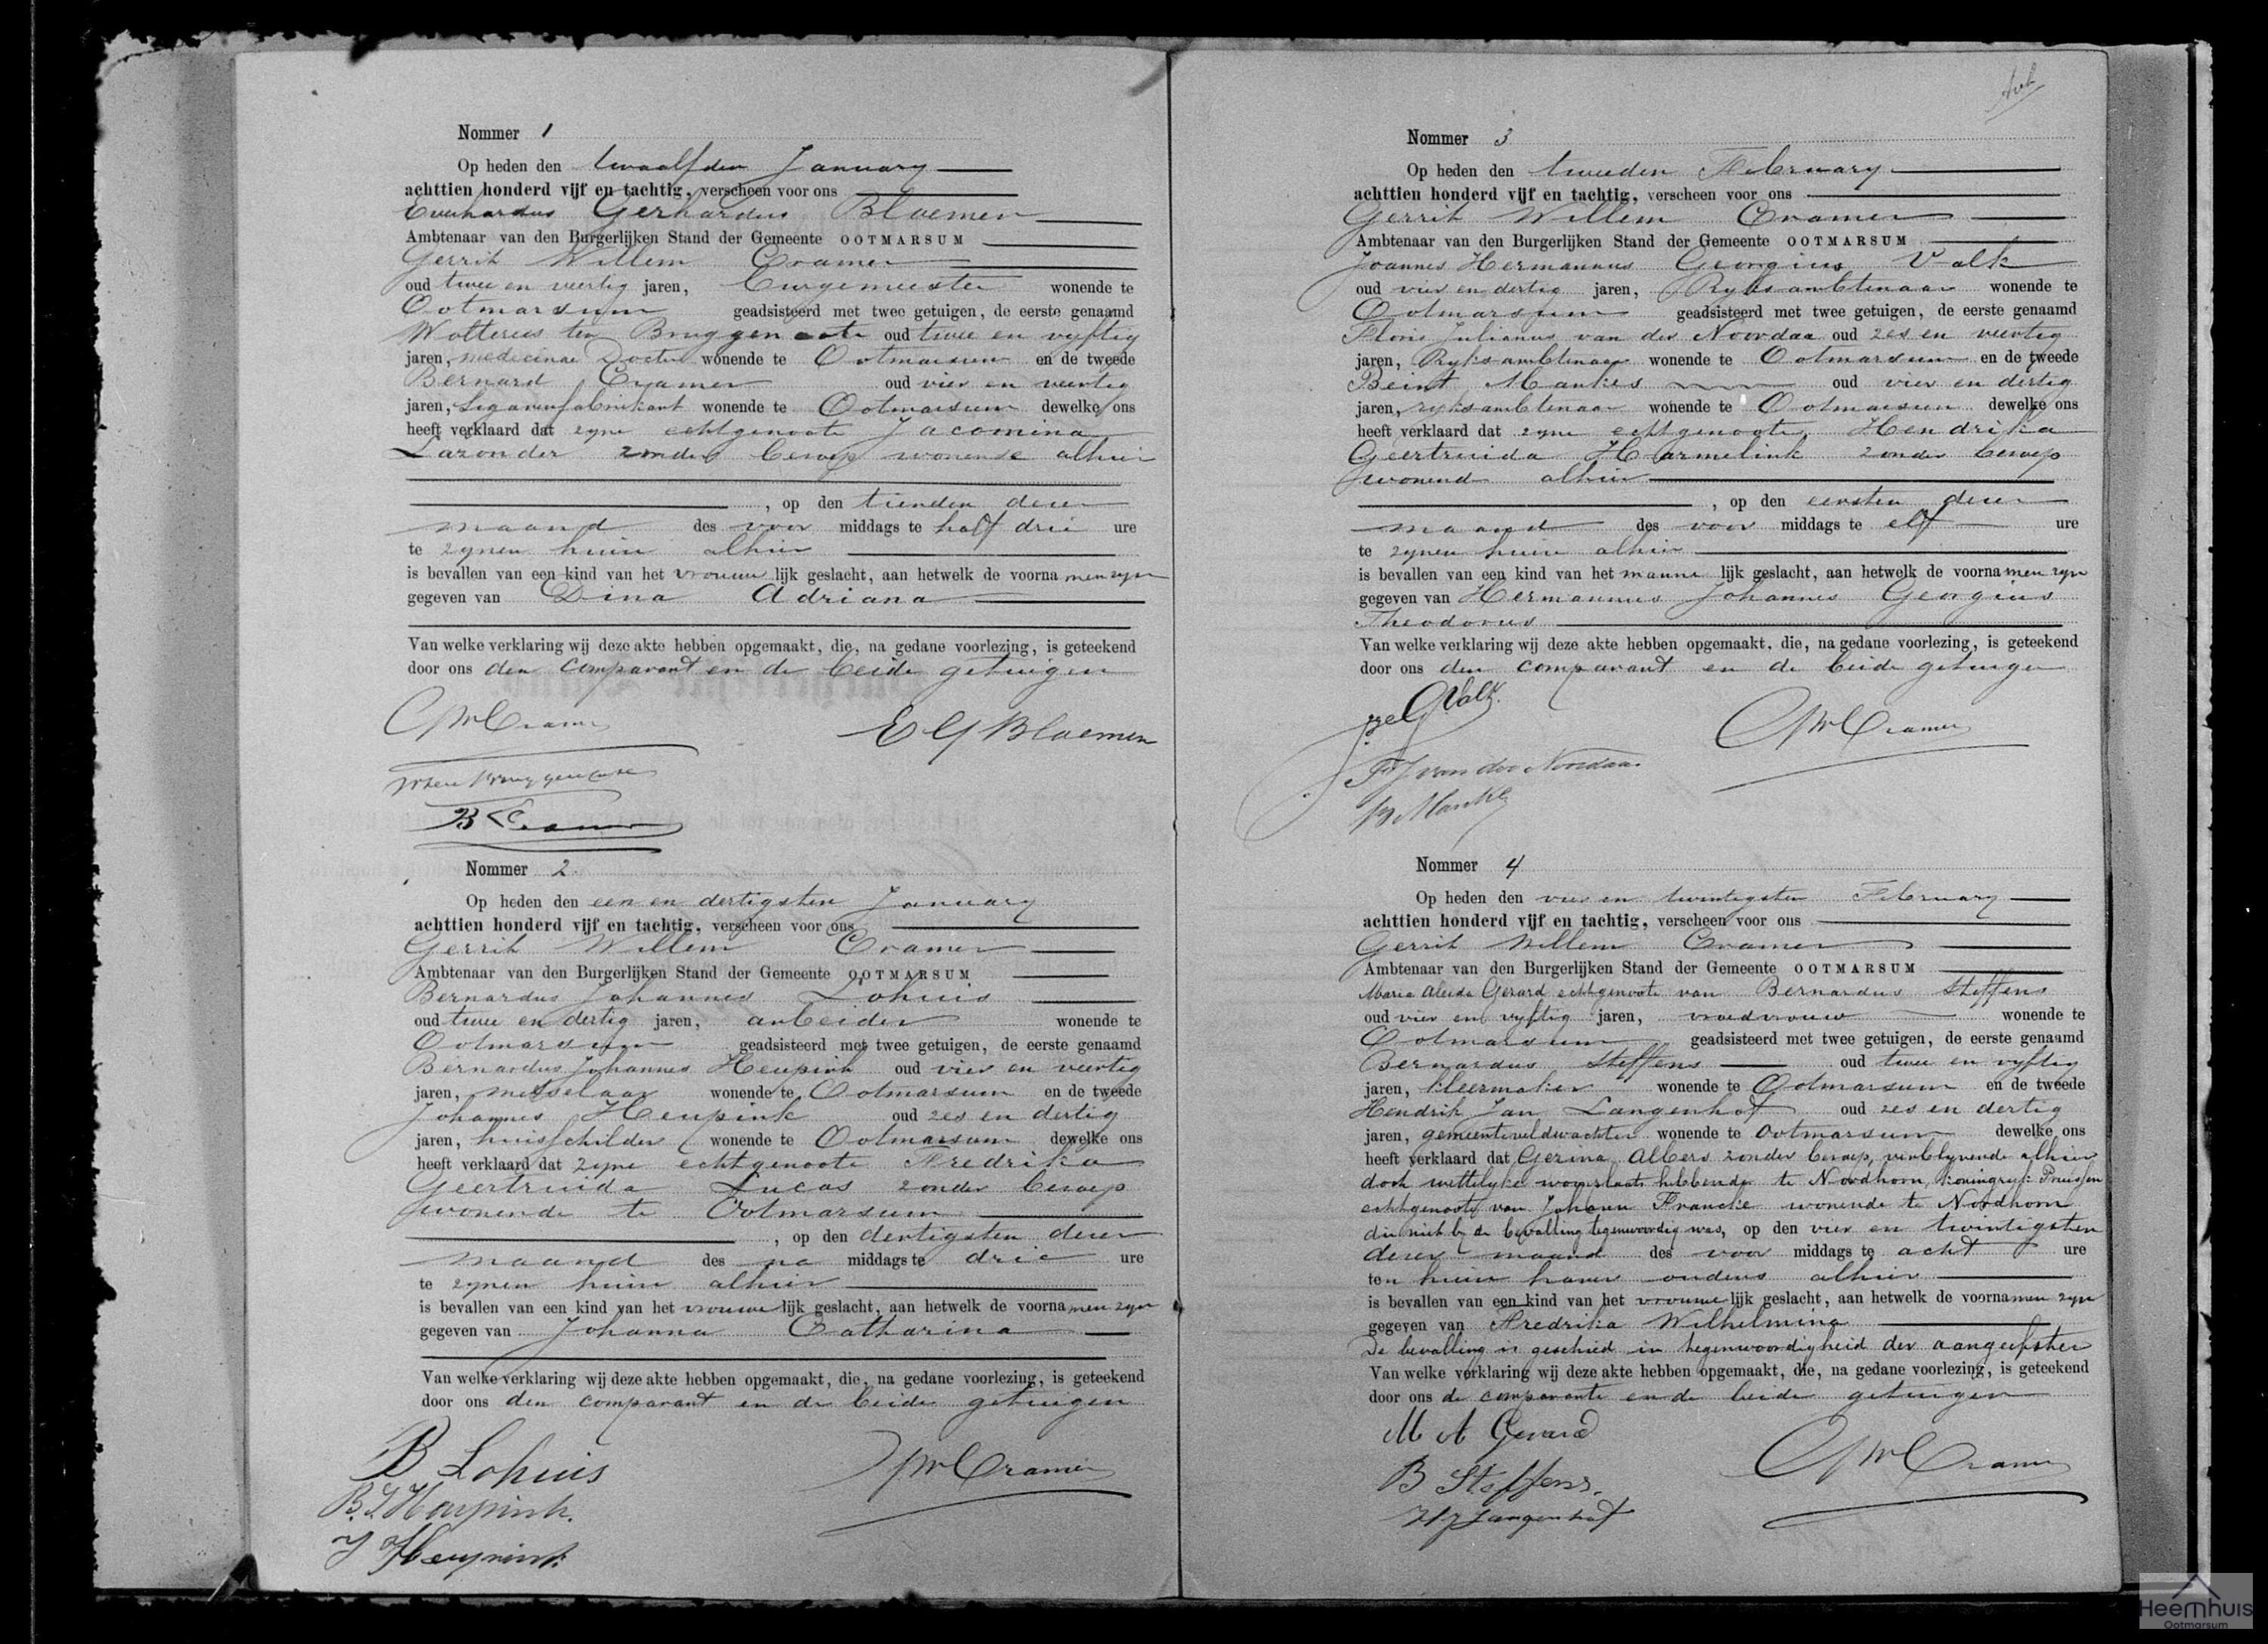 Nommer 1
Op heden den twaalfden January
achttien honderd vijf en tachtig, verscheen voor ons
Everhardus Gerhardus Bloemen
Ambtenaar van den Burgerlijken Stand der Gemeente OOTMARSUM
Gerrit Willem Cramer
oud twee en veertig jaren, Burgemeester wonende te
Ootmarsum geadsisteerd met twee getuigen, de eerste genaamd
Wolterus ten Bruggencate oud twee en vyftig
jaren, medicinae Doctor wonende te Ootmarsum en de tweede
Bernard Cramer oud vier en veertig
jaren, Sigarenfabrikant wonende te Ootmarsum dewelke ons
heeft verklaard dat zyne echtgenoote Jacomina
Lazonder zonder beroep wonende alhier
, op den tienden dezer
maand des voor middags te half drie ure
te zynen huize alhier
is bevallen van een kind van het vrouwelijk geslacht, aan hetwelk de voornamen zyn
gegeven van Dina Adriana
Van welke verklaring wij deze akte hebben opgemaakt, die, na gedane voorlezing, is geteekend
door ons den comparant en de beide getuigen
GWCramer
E G Bloemen
WtenBruggencate
B Cramer
Nommer 2
Op heden den een en dertigsten January
achttien honderd vijf en tachtig, verscheen voor ons
Gerrit Willem Cramer
Ambtenaar van den Burgerlijken Stand der Gemeente OOTMARSUM
Bernardus Johannes Lohuis
oud twee en dertig jaren, arbeider wonende te
Ootmarsum geadsisteerd met twee getuigen, de eerste genaamd
Bernardus Johannes Heupink oud vier en veertig
jaren, metselaar wonende te Ootmarsum en de tweede
Johannes Heupink oud zes en dertig
jaren, huisschilder wonende te Ootmarsum dewelke ons
heeft verklaard dat zyne echtgenoote Fredrika
Geertruida Lucas zonder beroep
wonende te Ootmarsum
, op den dertigsten dezer
maand des na middags te drie ure
te zynen huize alhier
is bevallen van een kind van het vrouwelijk geslacht, aan hetwelk de voornamen zyn
gegeven van Johanna Catharina
Van welke verklaring wij deze akte hebben opgemaakt, die, na gedane voorlezing, is geteekend
door ons den comparant en de beide getuigen
B Lohuis
GWCramer
B.J Heupink.
J Heupink.
Nommer 3
Op heden den tweeden February
achttien honderd vijf en tachtig, verscheen voor ons
Gerrit Willem Cramer
Ambtenaar van den Burgerlijken Stand der Gemeente OOTMARSUM
Joannes Hermannus Georgius Valk
oud vier en dertig jaren, Ryksambtenaar wonende te
Ootmarsum geadsisteerd met twee getuigen, de eerste genaamd
Floris Julianus van der Noordaa oud zes en veertig
jaren, Ryksambtenaar wonende te Ootmarsum en de tweede
Beint Mankes oud vier en dertig
jaren, ryksambtenaar wonende te Ootmarsum dewelke ons
heeft verklaard dat zyne echtgenoote, Hendrika
Geertruida Harmelink zonder beroep
wonend alhier
, op den eersten dezer
maand des voor middags te elf ure
te zynen huize alhier
is bevallen van een kind van het mannelijk geslacht, aan hetwelk de voornamen zyn
gegeven van Hermannus Johannes Georgius
Theodorus
Van welke verklaring wij deze akte hebben opgemaakt, die, na gedane voorlezing, is geteekend
door ons den comparant en de beide getuigen
GValk.
GWCramer
F J van der Noordaa
B Mankes
Nommer 4
Op heden den vier en twintigsten February
achttien honderd vijf en tachtig, verscheen voor ons
Gerrit Willem Cramer
Ambtenaar van den Burgerlijken Stand der Gemeente OOTMARSUM
Maria Aleida Gerard echtgenoote van Bernardus Steffens
oud vier en vyftig jaren, vroedvrouw wonende te
Ootmarsum geadsisteerd met twee getuigen, de eerste genaamd
Bernardus Steffens oud twee en vyftig
jaren, kleermaker wonende te Ootmarsum en de tweede
Hendrik Jan Langenhof oud zes en dertig
jaren, gemeenteveldwachter wonende te Ootmarsum dewelke ons
heeft verklaard dat Gezina Albers zonder beroep, verblyvende alhier
doch wettelyke woonplaats hebbende te Nordhorn, Koningryk Pruissen
echtgenoote van Johann Francke wonende te Nordhorn
die niet by de bevalling tegenwoordig was, op den vier en twintigsten
dezer maand des voor middags te acht ure
ten huize harer ouders alhier
is bevallen van een kind van het vrouwelijk geslacht, aan hetwelk de voornamen zyn
gegeven van Fredrika Wilhelmina
De bevalling is geschied in tegenwoordigheid der aangeefster
Van welke verklaring wij deze akte hebben opgemaakt, die, na gedane voorlezing, is geteekend
door ons de comparante en de beide getuigen
M A Gerard
GWCramer
B Steffens.
HJLangenhof
Heemhuis
Ootmarsum